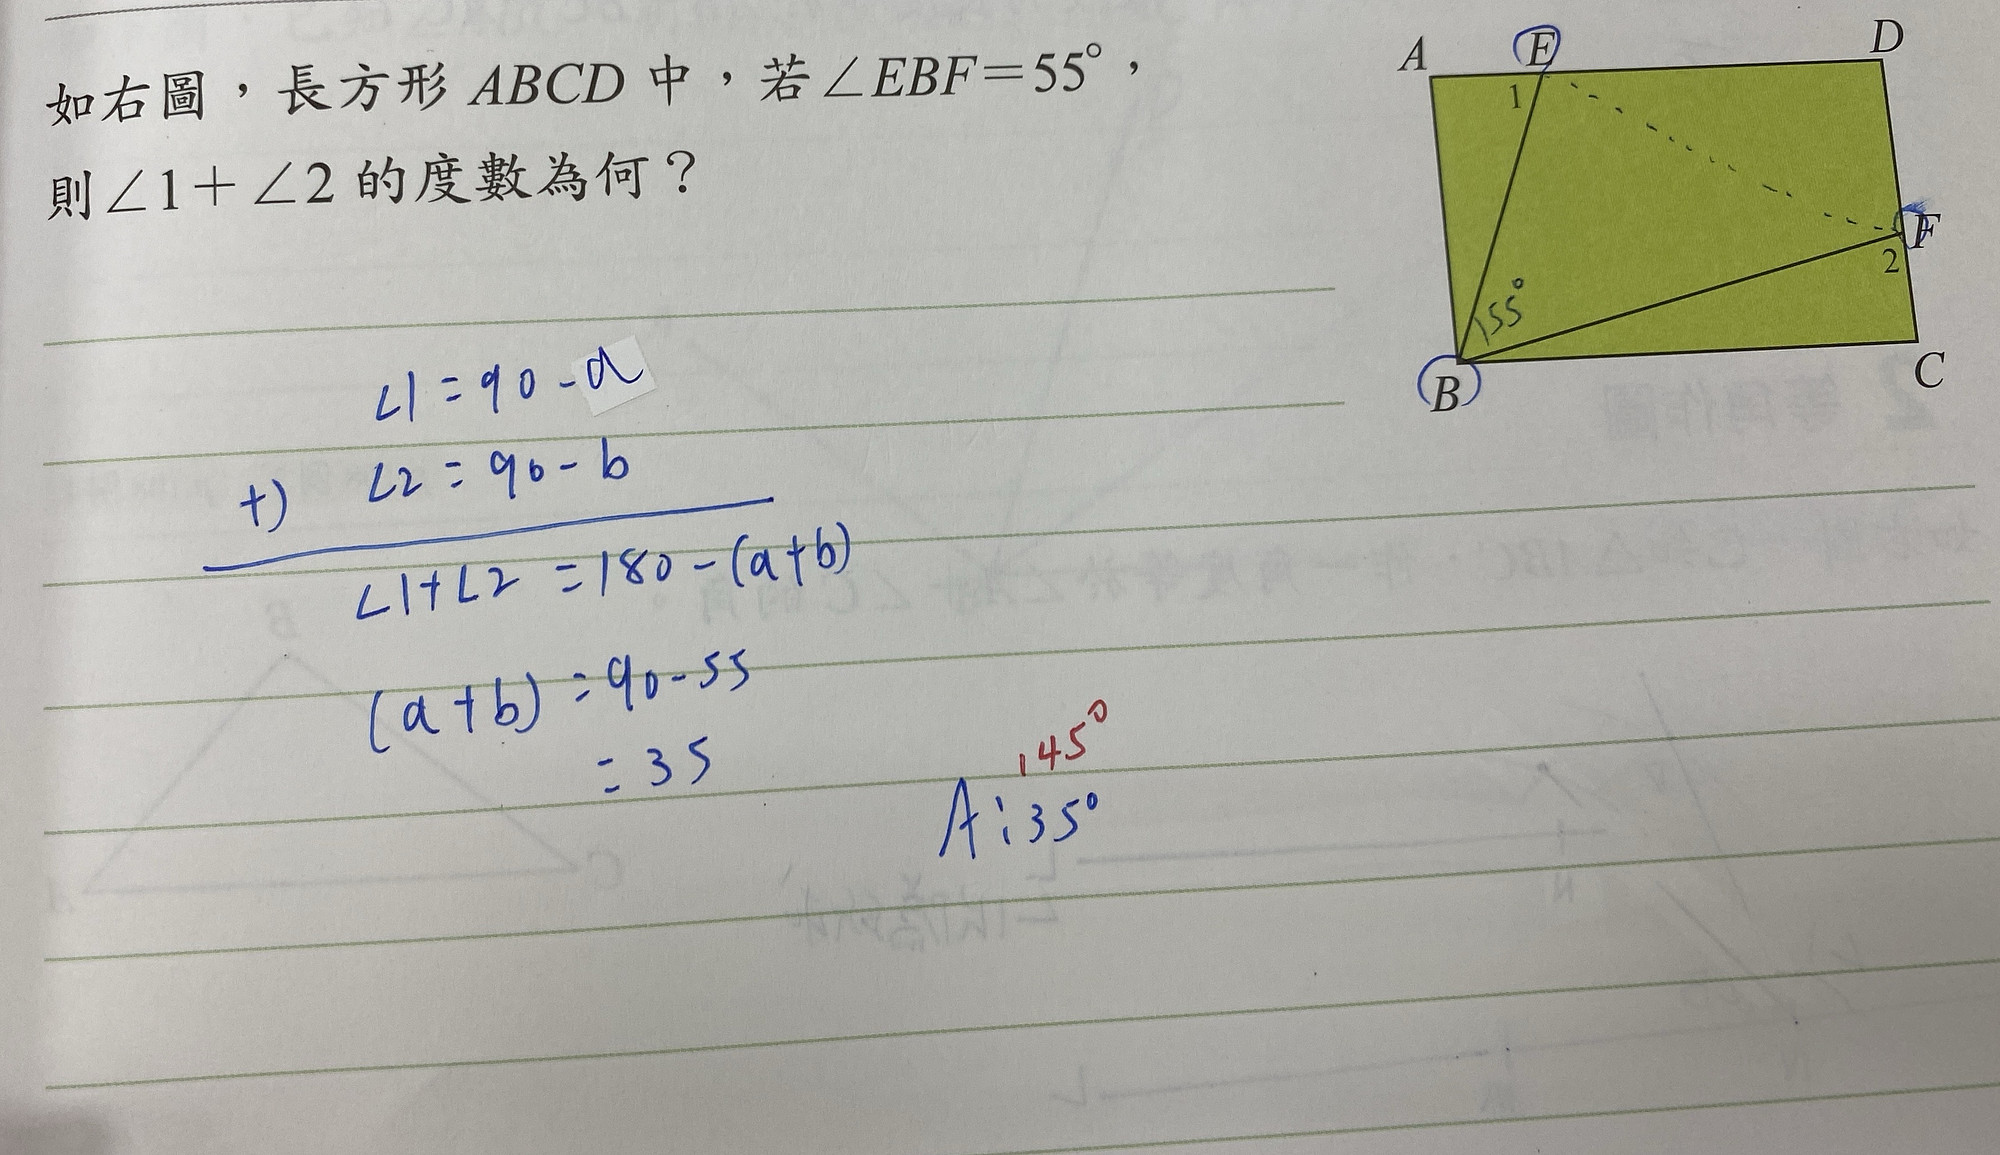 如右圖，長方形 ABCD 中，若∠EBF=55°，
則∠1+∠2 的度數為何？
A E D
1
F
2
55°
B C
∠1=90-a
∠2=90-b
+)
∠1+∠2=180-(a+b)
(a+b)=90-55
=35
145°
A:35°